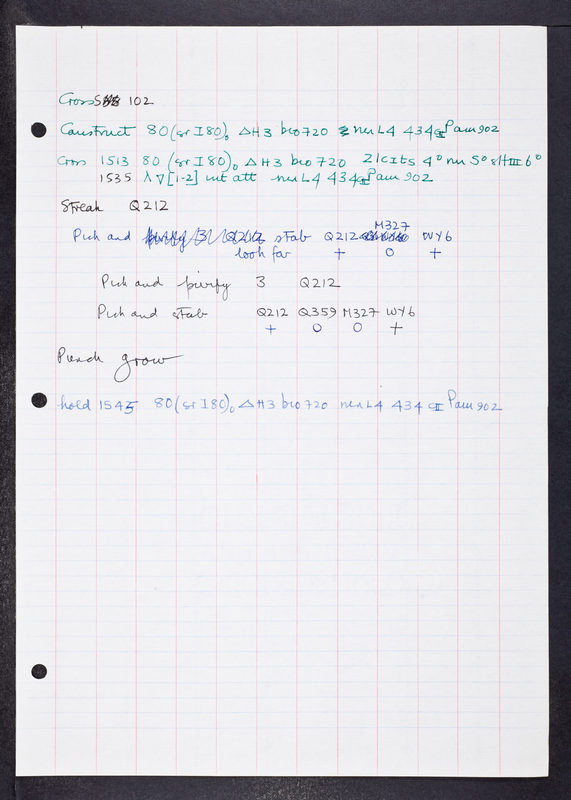 Cross 102
Construct 80 (sr I 80)₀ ΔH3 bio720 nin L4 434 cI Pam902
Cross 1513 80 (sr I 80)₀ ΔH3 bio 720 21cIts 4° nu 5° sHIII 6°
1535 λ ∇[1-2] int att nin L4 434cI Pam 902
Streak Q212
M327
Pick and stab Q212 WY6
look for + O +
Pick and purify 3 Q212
Pick and stab Q212 Q359 M327 WY6
+ O O +
Punch grow
hold 1545 80 (sr I 80)₀ ΔH3 bio 720 nin L4 434 cI Pam 902